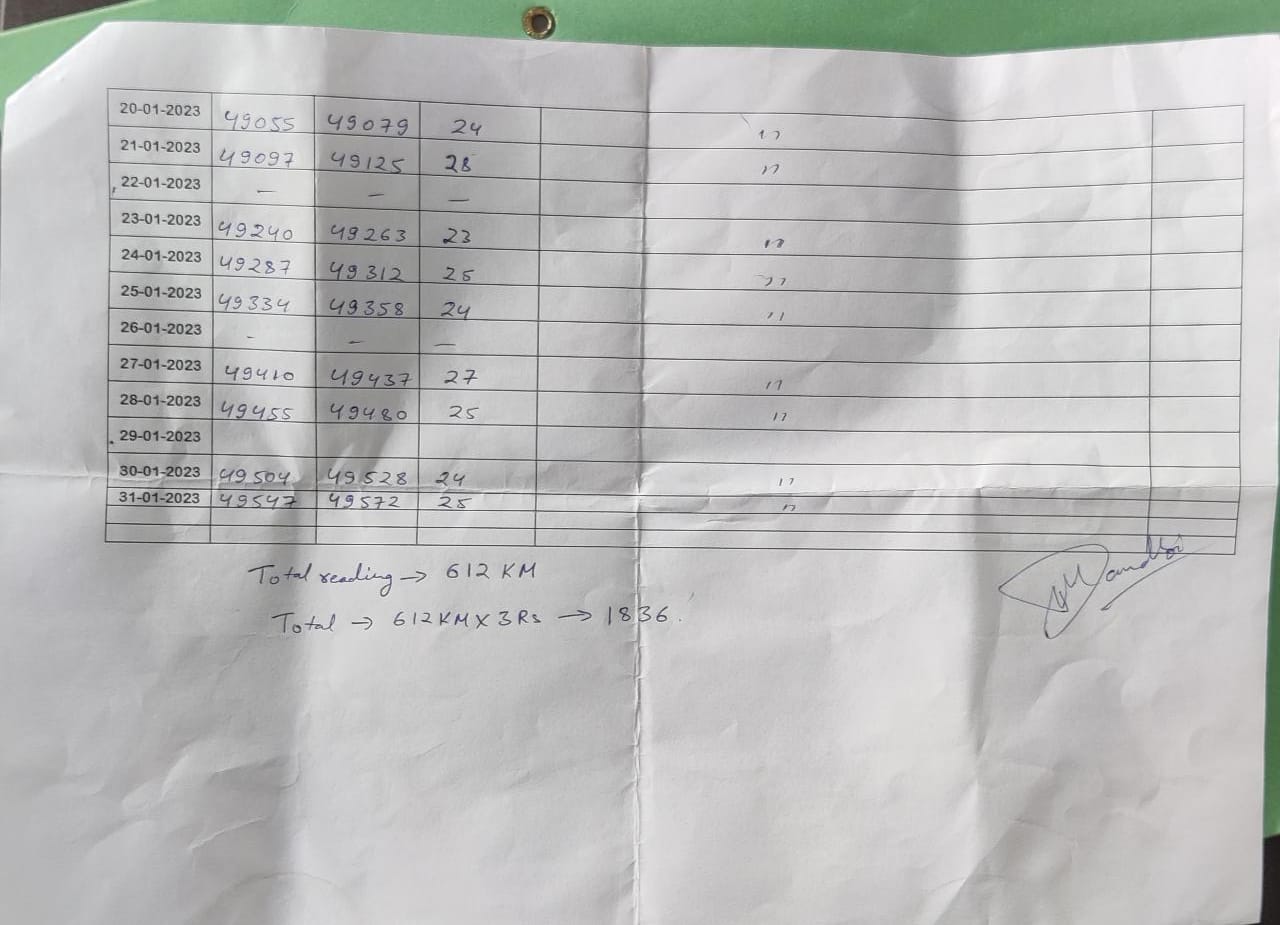 20-01-2023 49055 49079 24 "
21-01-2023 49097 49125 28 "
22-01-2023 — — —
23-01-2023 49240 49263 23 "
24-01-2023 49287 49312 25 "
25-01-2023 49334 49358 24 "
26-01-2023 - — —
27-01-2023 49410 49437 27 "
28-01-2023 49455 49480 25 "
29-01-2023
30-01-2023 49504 49528 24 "
31-01-2023 49547 49572 25 "
Total reading → 612 KM
Total → 612KM X 3Rs → 1836.